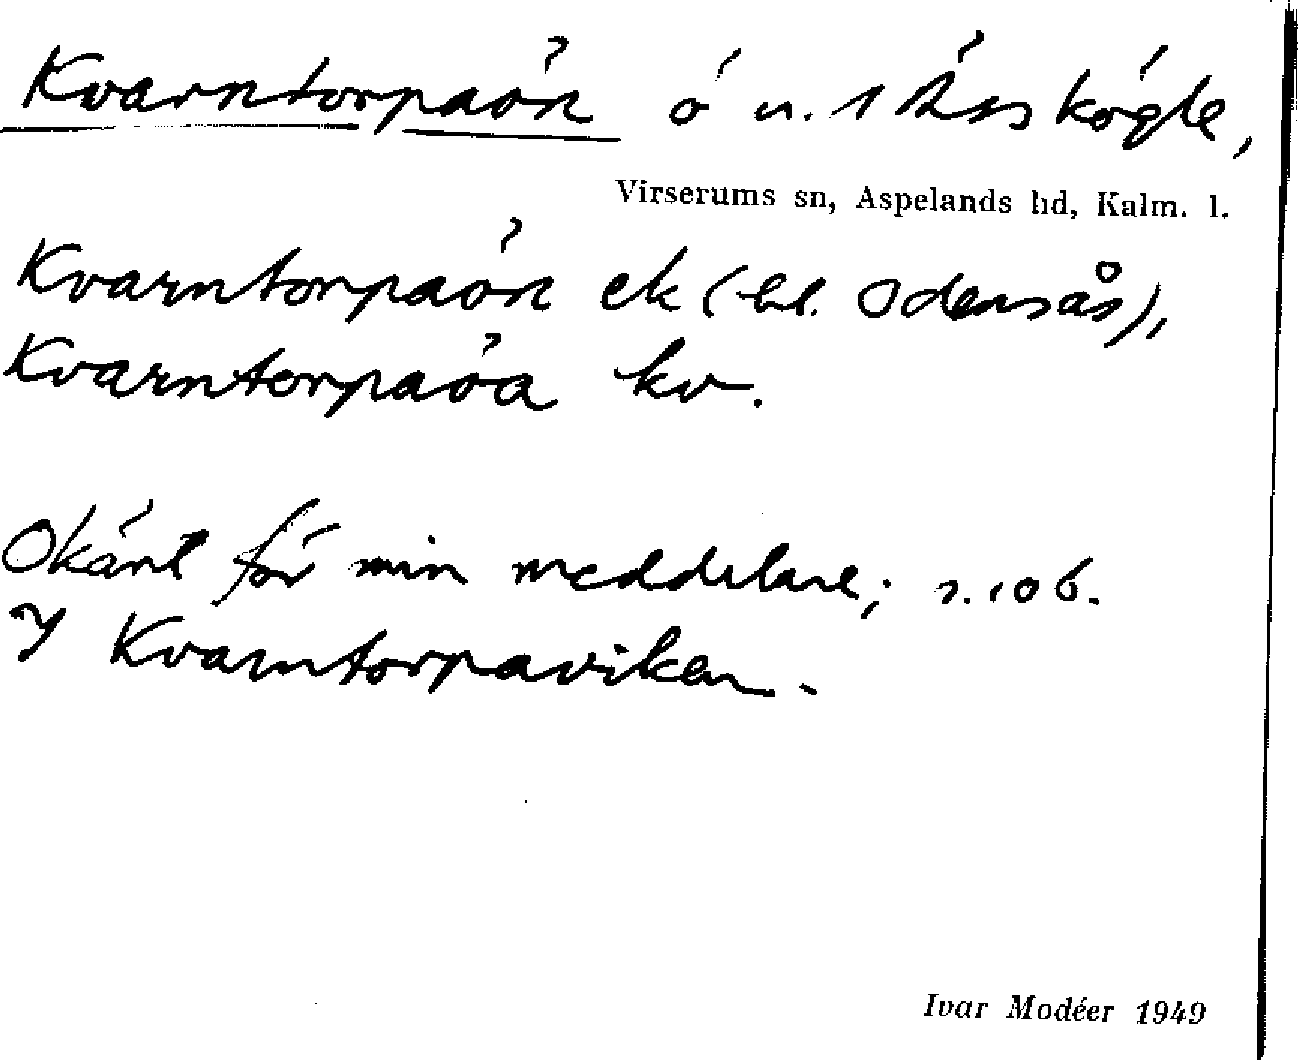 Kvarntorpaön ö n.
Virserums sn, Aspelands hd, Kalm. l.
Kvarntorpaön ek (bl. Odensås),
Kvarntorpaöa kv.
Okänt för min meddelare; s. 106.
Kvarntorpaviken.
Ivar Modéer 1949